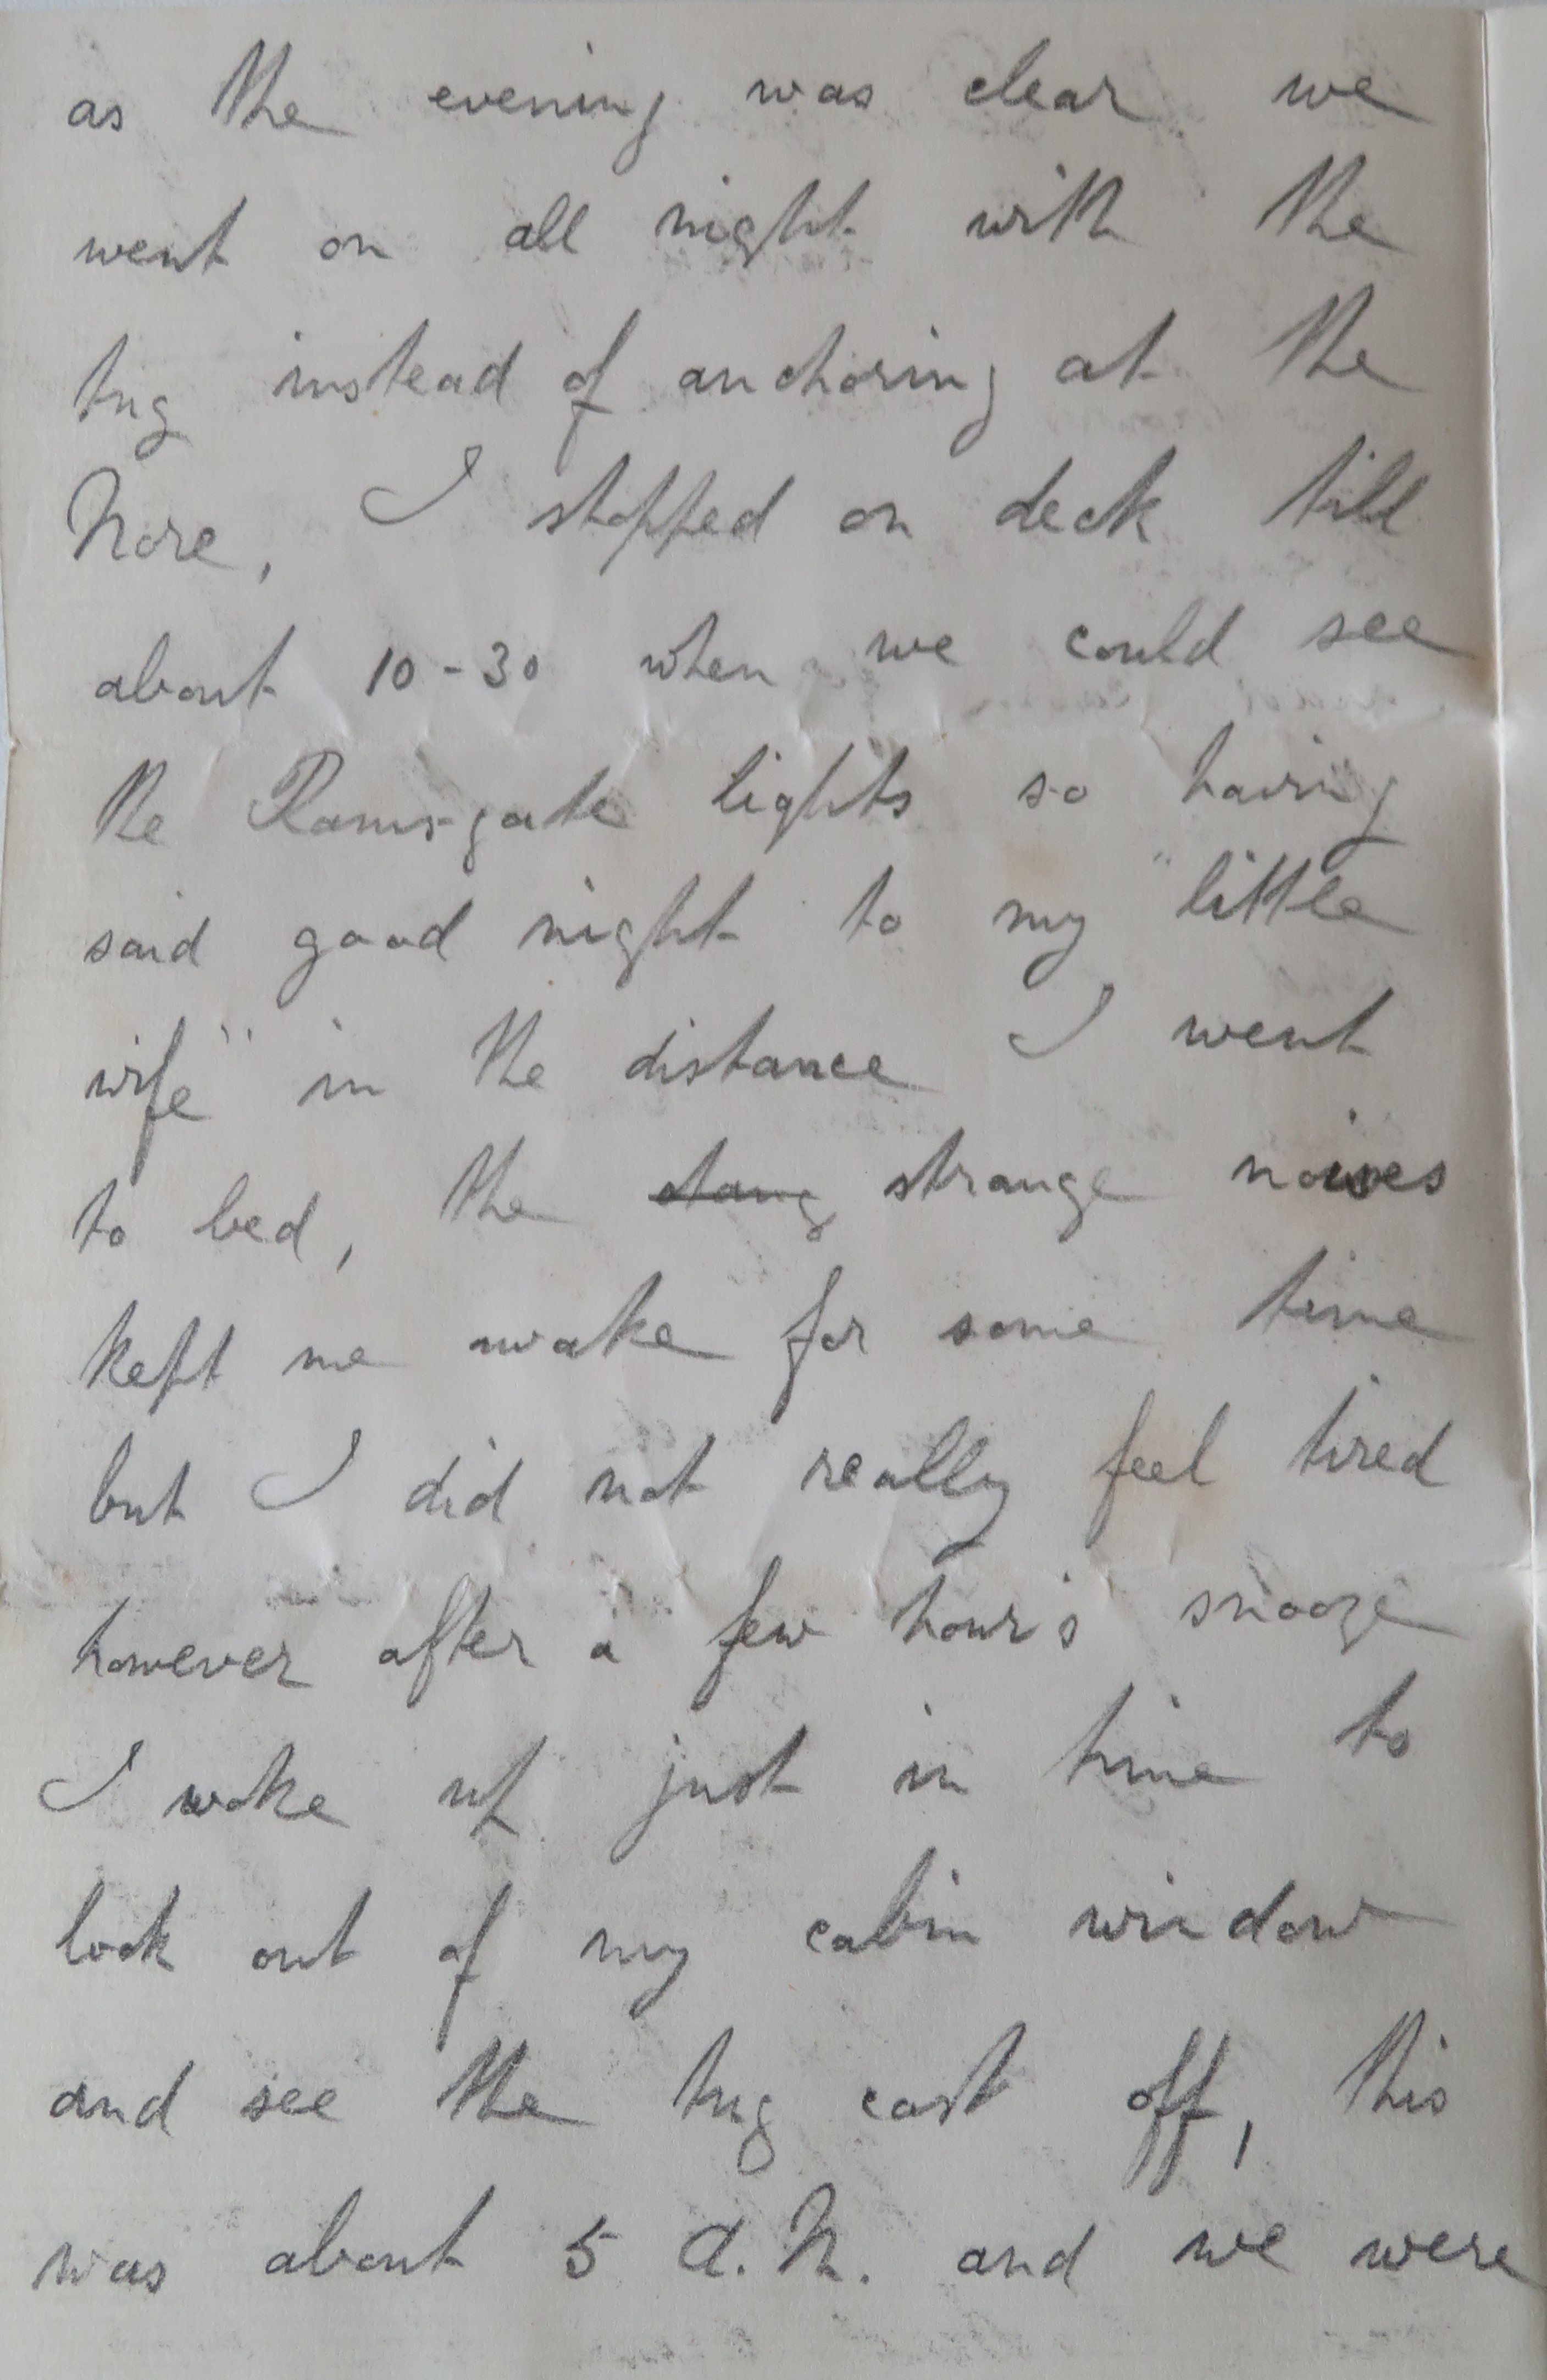 as the evening was clear we
went on all night with the
tug instead of anchoring at the
Nore, I stopped on deck till
about 10-30 when we could see
the Ramsgate lights so having
said good night to my "little
wife" in the distance I went
to bed, the strange noises
kept me awake for some time
but I did not really feel tired
however after a few hour's snooze
I woke up just in time to
look out of my cabin window
and see the tug cast off, this
was about 5 A.M. and we were